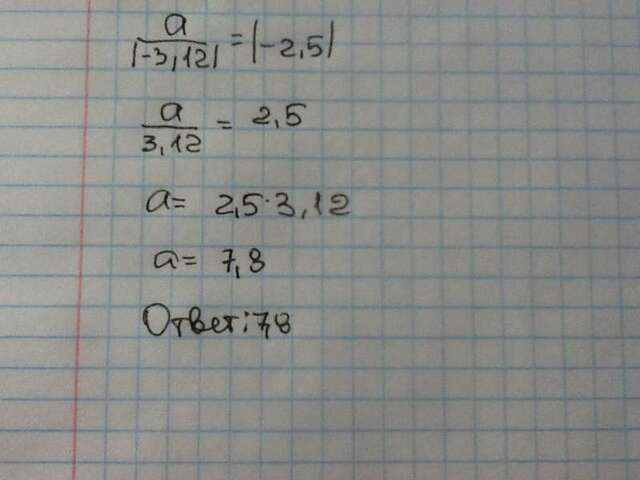 a/|-3,12| = |-2,5|
a/3,12 = 2,5
a = 2,5·3,12
a = 7,8
Ответ: 7,8